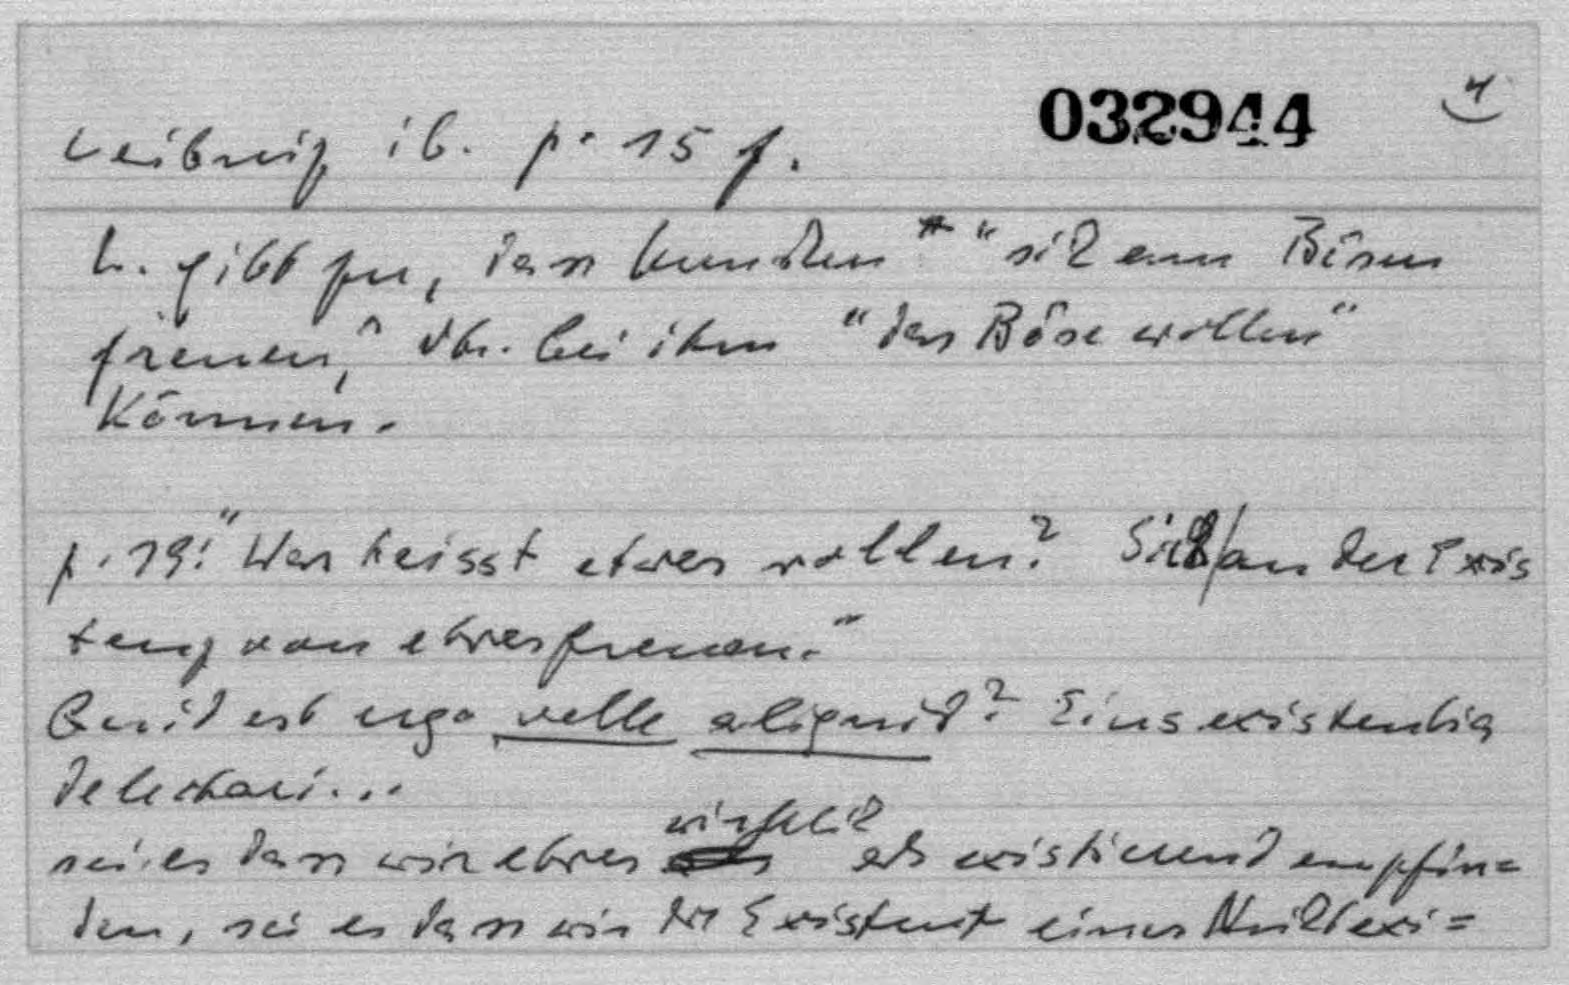 032944
4
Leibniz ib. p. 15 f.
L. gibt zu, dass Kunden "sich am Bösen
freuen", d.h. bei ihm "das Böse wollen"
können.
p. 19: "Was heisst etwas wollen? Sich an der Exis
tenz von etwas freuen."
Quid est ergo velle aliquid? Eius existentia
delectari...
sei es dass wir etwas wirklich als existierend empfin=
den, sei es dass wir die Existent eines Nichtexi=